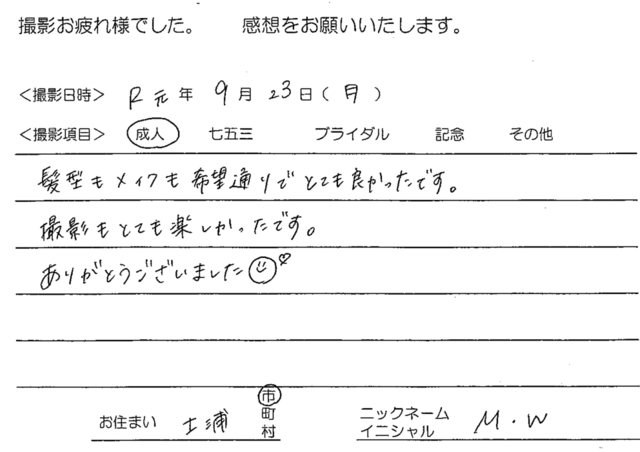 撮影お疲れ様でした。 感想をお願いいたします。
<撮影日時> R元年 9月 23日(月)
<撮影項目> 成人 七五三 ブライダル 記念 その他
髪型もメイクも希望通りでとても良かったです。
撮影もとても楽しかったです。
ありがとうございました
お住まい 土浦 市町村 ニックネーム イニシャル M.W